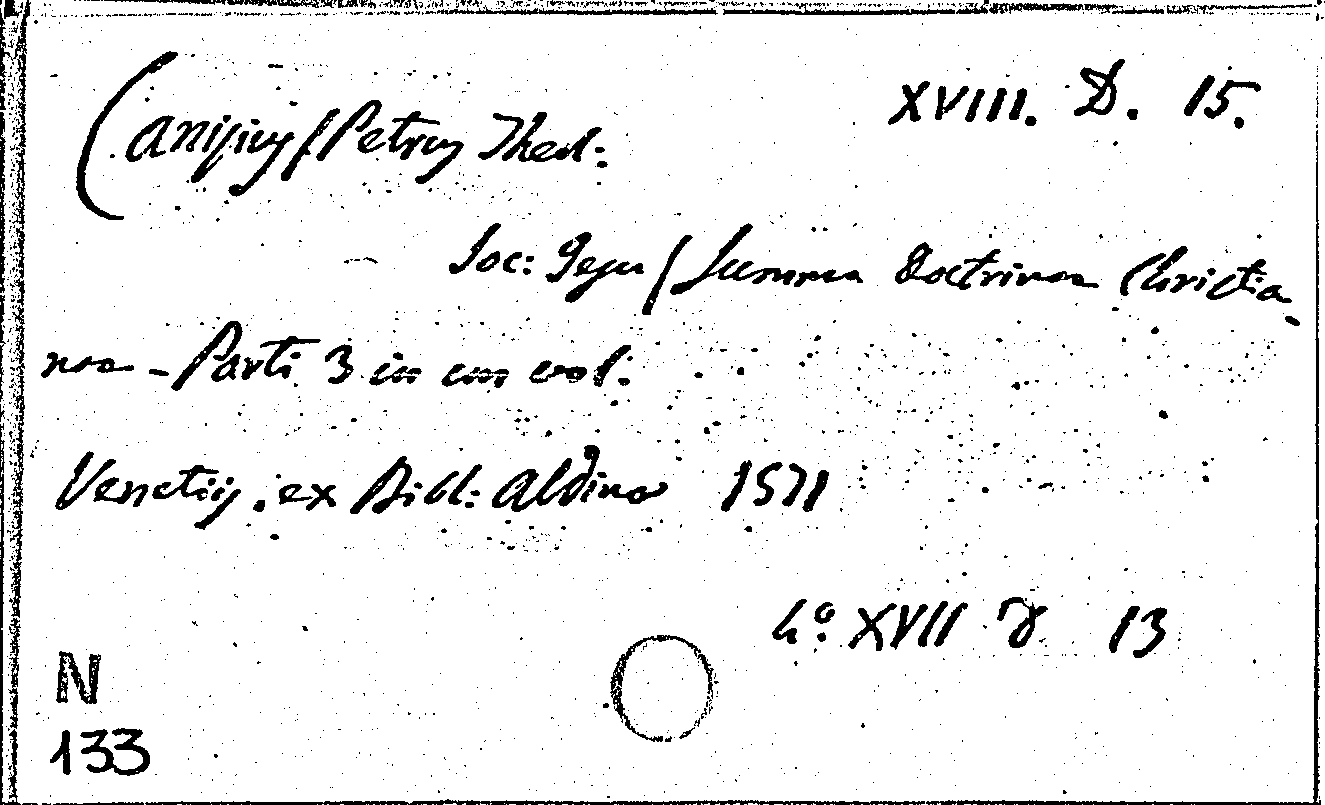 XVIII. D. 15.
Canisius / Petrus Theol:
Soc: Jesu / Summa Doctrinae Christia-
nae - Parti 3 in un vol:
Venetiis. ex Bibl: Aldina 1571
4º XVII 13
N
133